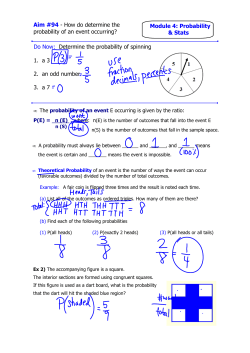 Aim #94 - How do determine the
probability of an event occurring?
Module 4: Probability
& Stats
Do Now: Determine the probability of spinning
1. a 3 P(3) = 1/5
2. an odd number 3/5
3. a 7 = 0
use
fraction,
decimals, percents
5 1
4 2
3
The probability of an event E occurring is given by the ratio:
P(E) = n (E) n(E) is the number of outcomes that fall into the event E
n (S) total n(S) is the number of outcomes that fall in the sample space.
A probability must always be between 0 and 1, and 1 means
the event is certain and 0 means the event is impossible.
(100%)
Theoretical Probability of an event is the number of ways the event can occur
(favorable outcomes) divided by the number of total outcomes.
Example: A fair coin is flipped three times and the result is noted each time.
Heads, Tails
(a) List all of the outcomes as ordered triples. How many of them are there?
Total: HHH HTH HHT TTT = 8
(b) Find each of the following probabilities
(1) P(all heads) (2) P(exactly 2 heads) (3) P(all heads or all tails)
1/8 3/8 2/8 = 1/4
Ex 2) The accompanying figure is a square.
The interior sections are formed using congruent squares.
If this figure is used as a dart board, what is the probability
that the dart will hit the shaded blue region?
P(shaded) = 5/9
total